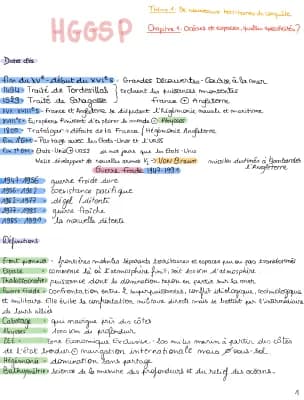 Thème 1: De nouveaux territoires de conquête
HGGSP
Chapitre 1: Océans et espaces, quelles spécificités?
Dates clés
fin du XVe - début du XVIe s Grandes Découvertes
1494 Traité de Tordesillas
1529 Traité de Saragosse
France Angleterre
France et Angleterre se disputent l'hégémonie navale et maritime
Européens finissent d'explorer le monde Abysses
1805 Trafalgar → défaite de la France / Hégémonie Angleterre
Partage avec les États-Unis et l'URSS
États-Unis URSS pas que les États-Unis
Volle développent de nouvelles armes V2 → Von Braun mission destinée à bombarder l'Angleterre
Guerre froide 1947-1991
1947-1956 guerre froide dure
1956-1962 coexistence pacifique
1962-1977 dégel / détente
1977-1985 guerre fraîche
1985-1991 la nouvelle détente
Définitions
Front pionnier frontières mobiles séparant territoires et espaces peu ou pas transformés
Espace commence là où l'atmosphère finit, soit 100 km d'atmosphère
Thalassocratie puissance dont la domination repose en partie sur la mer
Guerre froide confrontation entre 2 superpuissances, conflit idéologique, technologique
et militaire. Elle évite la confrontation nucléaire directe mais se battent par l'intermédiaire
de leurs alliés
Cabotage qui navigue près des côtes
Abysses de profondeur
ZEE Zone Économique Exclusive 200 milles marins à partir des côtes
de l'état bordier navigation internationale mais sous-sol
Hégémonie domination sans partage
Bathymétrie science de la mesure des profondeurs et du relief des océans.
1